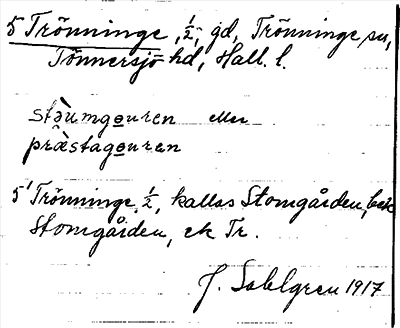 5 Trönninge, ½, gd, Trönninge sn,
Tönnersjö hd, Hall. l.
stòumgouren eller
præ̀stagouren
5¹ Trönninge, ½, kallas Stomgården, bek
Stomgården, ek Tr.
J. Sahlgren 1917